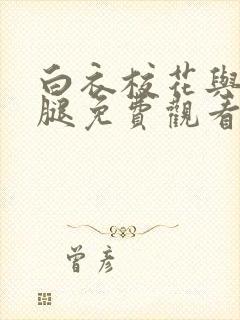 白衣校花與
腿免費觀看
曾彥